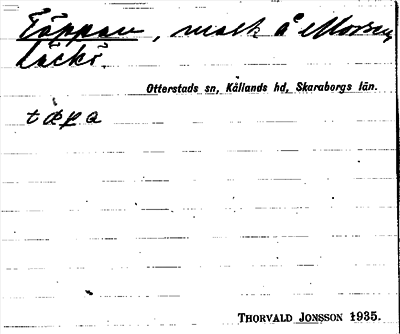 Täppan, mark å Morsen,
Läckö.
Otterstads sn, Kållands hd, Skaraborgs län.
tæpa
THORVALD JONSSON 1935.